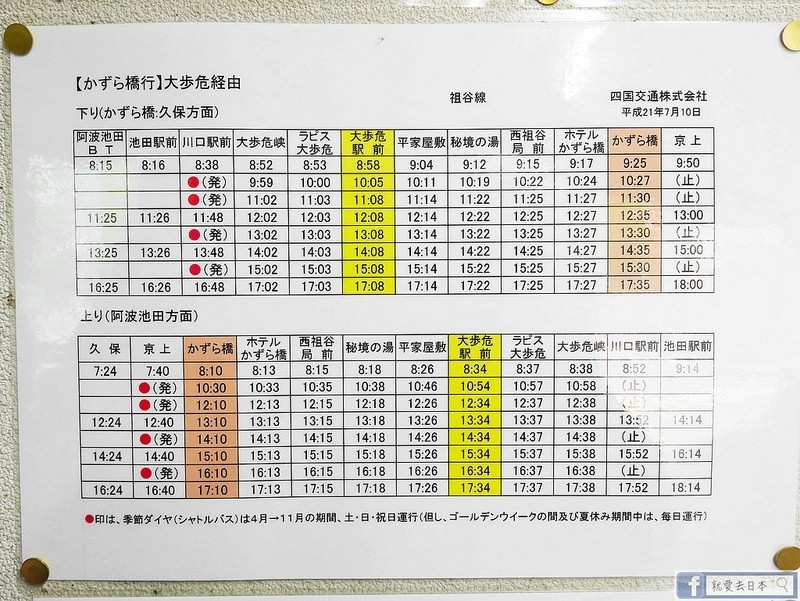 【かずら橋行】大歩危経由
祖谷線 四国交通株式会社
下り(かずら橋:久保方面) 平成21年7月10日
阿波池田BT 池田駅前 川口駅前 大歩危峡 ラピス大歩危 大歩危駅前 平家屋敷 秘境の湯 西祖谷局前 ホテルかずら橋 かずら橋 京上
8:15 8:16 8:38 8:52 8:53 8:58 9:04 9:12 9:15 9:17 9:25 9:50
●(発) 9:59 10:00 10:05 10:11 10:19 10:22 10:24 10:27 (止)
●(発) 11:02 11:03 11:08 11:14 11:22 11:25 11:27 11:30 (止)
11:25 11:26 11:48 12:02 12:03 12:08 12:14 12:22 12:25 12:27 12:35 13:00
●(発) 13:02 13:03 13:08 13:14 13:22 13:25 13:27 13:30 (止)
13:25 13:26 13:48 14:02 14:03 14:08 14:14 14:22 14:25 14:27 14:35 15:00
●(発) 15:02 15:03 15:08 15:14 15:22 15:25 15:27 15:30 (止)
16:25 16:26 16:48 17:02 17:03 17:08 17:14 17:22 17:25 17:27 17:35 18:00
上り(阿波池田方面)
久保 京上 かずら橋 ホテルかずら橋 西祖谷局前 秘境の湯 平家屋敷 大歩危駅前 ラピス大歩危 大歩危峡 川口駅前 池田駅前
7:24 7:40 8:10 8:13 8:15 8:18 8:26 8:34 8:37 8:38 8:52 9:14
●(発) 10:30 10:33 10:35 10:38 10:46 10:54 10:57 10:58 (止)
●(発) 12:10 12:13 12:15 12:18 12:26 12:34 12:37 12:38 (止)
12:24 12:40 13:10 13:13 13:15 13:18 13:26 13:34 13:37 13:38 13:52 14:14
●(発) 14:10 14:13 14:15 14:18 14:26 14:34 14:37 14:38 (止)
14:24 14:40 15:10 15:13 15:15 15:18 15:26 15:34 15:37 15:38 15:52 16:14
●(発) 16:10 16:13 16:15 16:18 16:26 16:34 16:37 16:38 (止)
16:24 16:40 17:10 17:13 17:15 17:18 17:26 17:34 17:37 17:38 17:52 18:14
●印は、季節ダイヤ(シャトルバス)は4月→11月の期間、土・日・祝日運行(但し、ゴールデンウイークの間及び夏休み期間中は、毎日運行)
f 就愛去日本